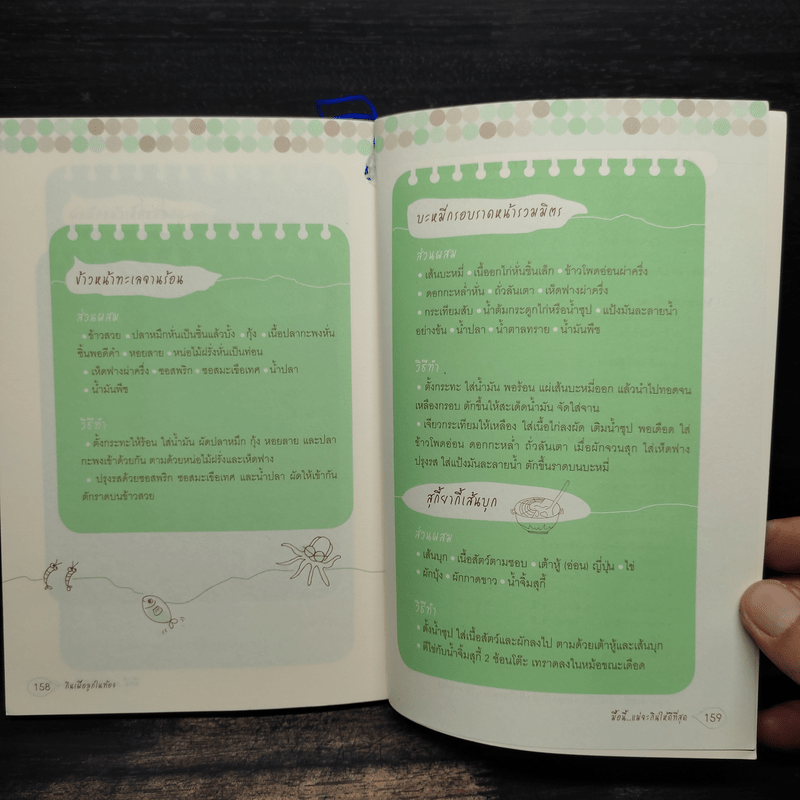 ข้าวหน้าทะเลจานร้อน
ส่วนผสม
• ข้าวสวย • ปลาหมึกหั่นเป็นชิ้นแล้วบั้ง • กุ้ง • เนื้อปลากะพงหั่น
ชิ้นพอดีคำ • หอยลาย • หน่อไม้ฝรั่งหั่นเป็นท่อน
• เห็ดฟางผ่าครึ่ง • ซอสพริก • ซอสมะเขือเทศ • น้ำปลา
• น้ำมันพืช
วิธีทำ
• ตั้งกระทะให้ร้อน ใส่น้ำมัน ผัดปลาหมึก กุ้ง หอยลาย และปลา
กะพงเข้าด้วยกัน ตามด้วยหน่อไม้ฝรั่งและเห็ดฟาง
• ปรุงรสด้วยซอสพริก ซอสมะเขือเทศ และน้ำปลา ผัดให้เข้ากัน
ตักราดบนข้าวสวย
158 กินเพื่อลูกในท้อง
บะหมี่กรอบราดหน้ารวมมิตร
ส่วนผสม
• เส้นบะหมี่ • เนื้ออกไก่หั่นชิ้นเล็ก • ข้าวโพดอ่อนผ่าครึ่ง
• ดอกกะหล่ำหั่น • ถั่วลันเตา • เห็ดฟางผ่าครึ่ง
• กระเทียมสับ • น้ำต้มกระดูกไก่หรือน้ำซุป • แป้งมันละลายน้ำ
อย่างข้น • น้ำปลา • น้ำตาลทราย • น้ำมันพืช
วิธีทำ
• ตั้งกระทะ ใส่น้ำมัน พอร้อน แผ่เส้นบะหมี่ออก แล้วนำไปทอดจน
เหลืองกรอบ ตักขึ้นให้สะเด็ดน้ำมัน จัดใส่จาน
• เจียวกระเทียมให้เหลือง ใส่เนื้อไก่ลงผัด เติมน้ำซุป พอเดือด ใส่
ข้าวโพดอ่อน ดอกกะหล่ำ ถั่วลันเตา เมื่อผักจวนสุก ใส่เห็ดฟาง
ปรุงรส ใส่แป้งมันละลายน้ำ ตักขึ้นราดบนบะหมี่
สุกี้ยากี้เส้นบุก
ส่วนผสม
• เส้นบุก • เนื้อสัตว์ตามชอบ • เต้าหู้ (อ่อน) ญี่ปุ่น • ไข่
• ผักบุ้ง • ผักกาดขาว • น้ำจิ้มสุกี้
วิธีทำ
• ตั้งน้ำซุป ใส่เนื้อสัตว์และผักลงไป ตามด้วยเต้าหู้และเส้นบุก
• ตีไข่กับน้ำจิ้มสุกี้ 2 ช้อนโต๊ะ เทราดลงในหม้อขณะเดือด
มื้อนี้...แม่จะกินให้ดีที่สุด 159